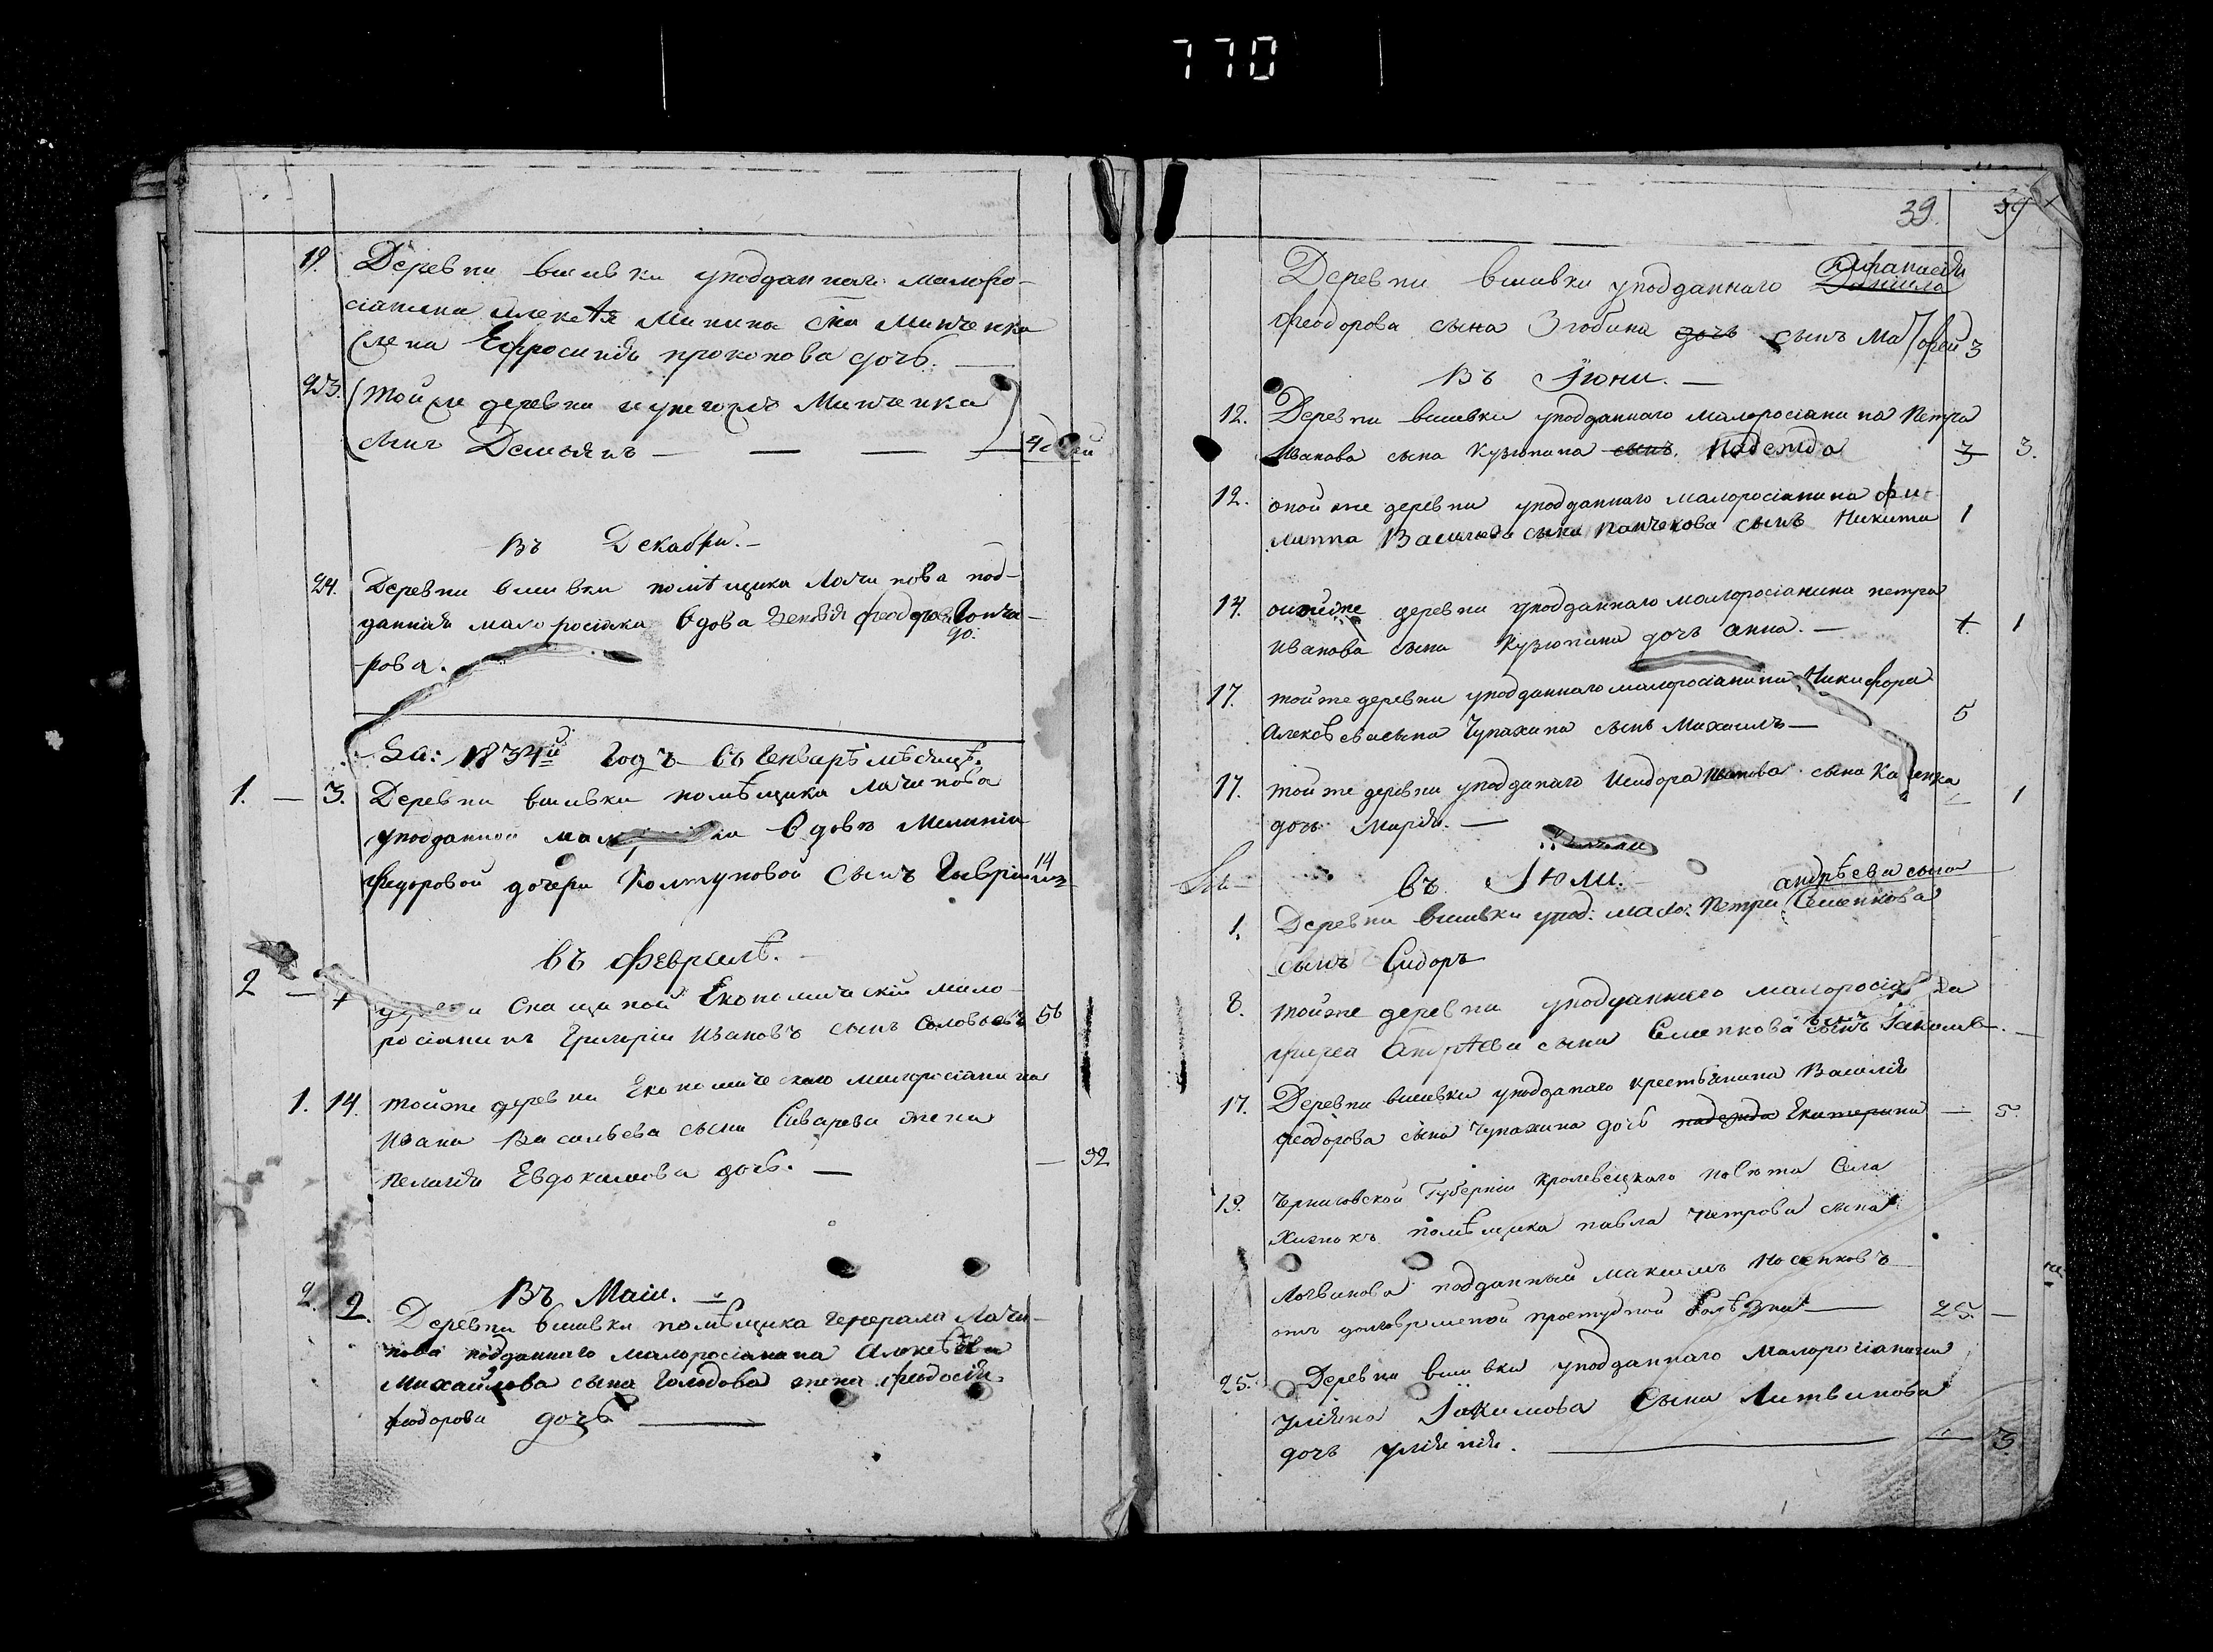 770
19. Деревни вшивки уподданнаго малоро-
сіанина Алексѣя Минина сна Минченка
жена Ефросинія прокопова дочь.
23. тойже деревни Минченка
сынъ Демьянъ
Въ Декабрѣ.
24. Деревни вшивки помѣщика Лачинова под-
данная малоросіянка вдова Зеновія феодорова Гонча-
до:
рова.
За: 1834й Годъ въ Генварѣ мѣсяцѣ.
1. — 3. Деревни вшивки помѣщика Лачинова
уподданной вдовѣ Меланіи
Федоровой дочери Колтуновой Сынъ Гаврiилъ 14
въ Февралѣ.
2 — Економическій мало-
росіанинъ Григорій Ивановъ сынъ Соловьевъ 56
1. 14. тойже деревни Економическаго малоросіанина
Ивана Васильева сына Сиварева жена
пелагія Евдокимова дочь. — — 32
Въ Маіи.
2. 2. Деревни вшивки помѣщика генерала Лачи-
нова подданнаго малоросіанина Алексѣя
Михайлова сына Голодова жена феодосія
федорова дочь
39. 39
Деревни вшивки уподданнаго Данила
Афанасія
феодорова сына Злобина дочь сынъ Матфей 3
Въ Іюни.
12. Деревни вшивки уподданнаго малоросіанина Петра
Иванова сына Кузюпина сынъ. Надежда 3 3.
12. оной же деревни уподданнаго малоросіанина фи-
липпа Васильева сына панченова сынъ Никита 1
14. онойже деревни уподданнаго малоросіанина петра
Иванова сына Кузюпина дочь анна. — 1. 1
17. тойже деревни уподданнаго малоросіанина Никифора
Алексѣева сына Чупахина сынъ Михаилъ — 5
17. тойже деревни уподданаго Исидора Иванова сына
дочь Марія. — 1
въ Іюли.
андрѣева сына
1. Деревни вшивки упод: мало: Петра Семенкова
сынъ Сидоръ
8. тойже деревни уподданнаго
Андрѣева сына Семенкова сынъ Іакимъ.
17. Деревни вшивки уподданаго крестьянина Василія
феодорова сына Чупахина дочь надежда Екатерина — 5
19. Черниговской Губерніи Кролевецкаго повѣта Села
помѣщика павла петрова сына
Логвинова подданный максимъ Носенковъ
отъ долговременной простудной болѣзни — 25. —
25. Деревни вшивки уподданнаго Малоросіанина
уліяна Іакимова Сына Литвинова
дочь уліянія. — — 3.